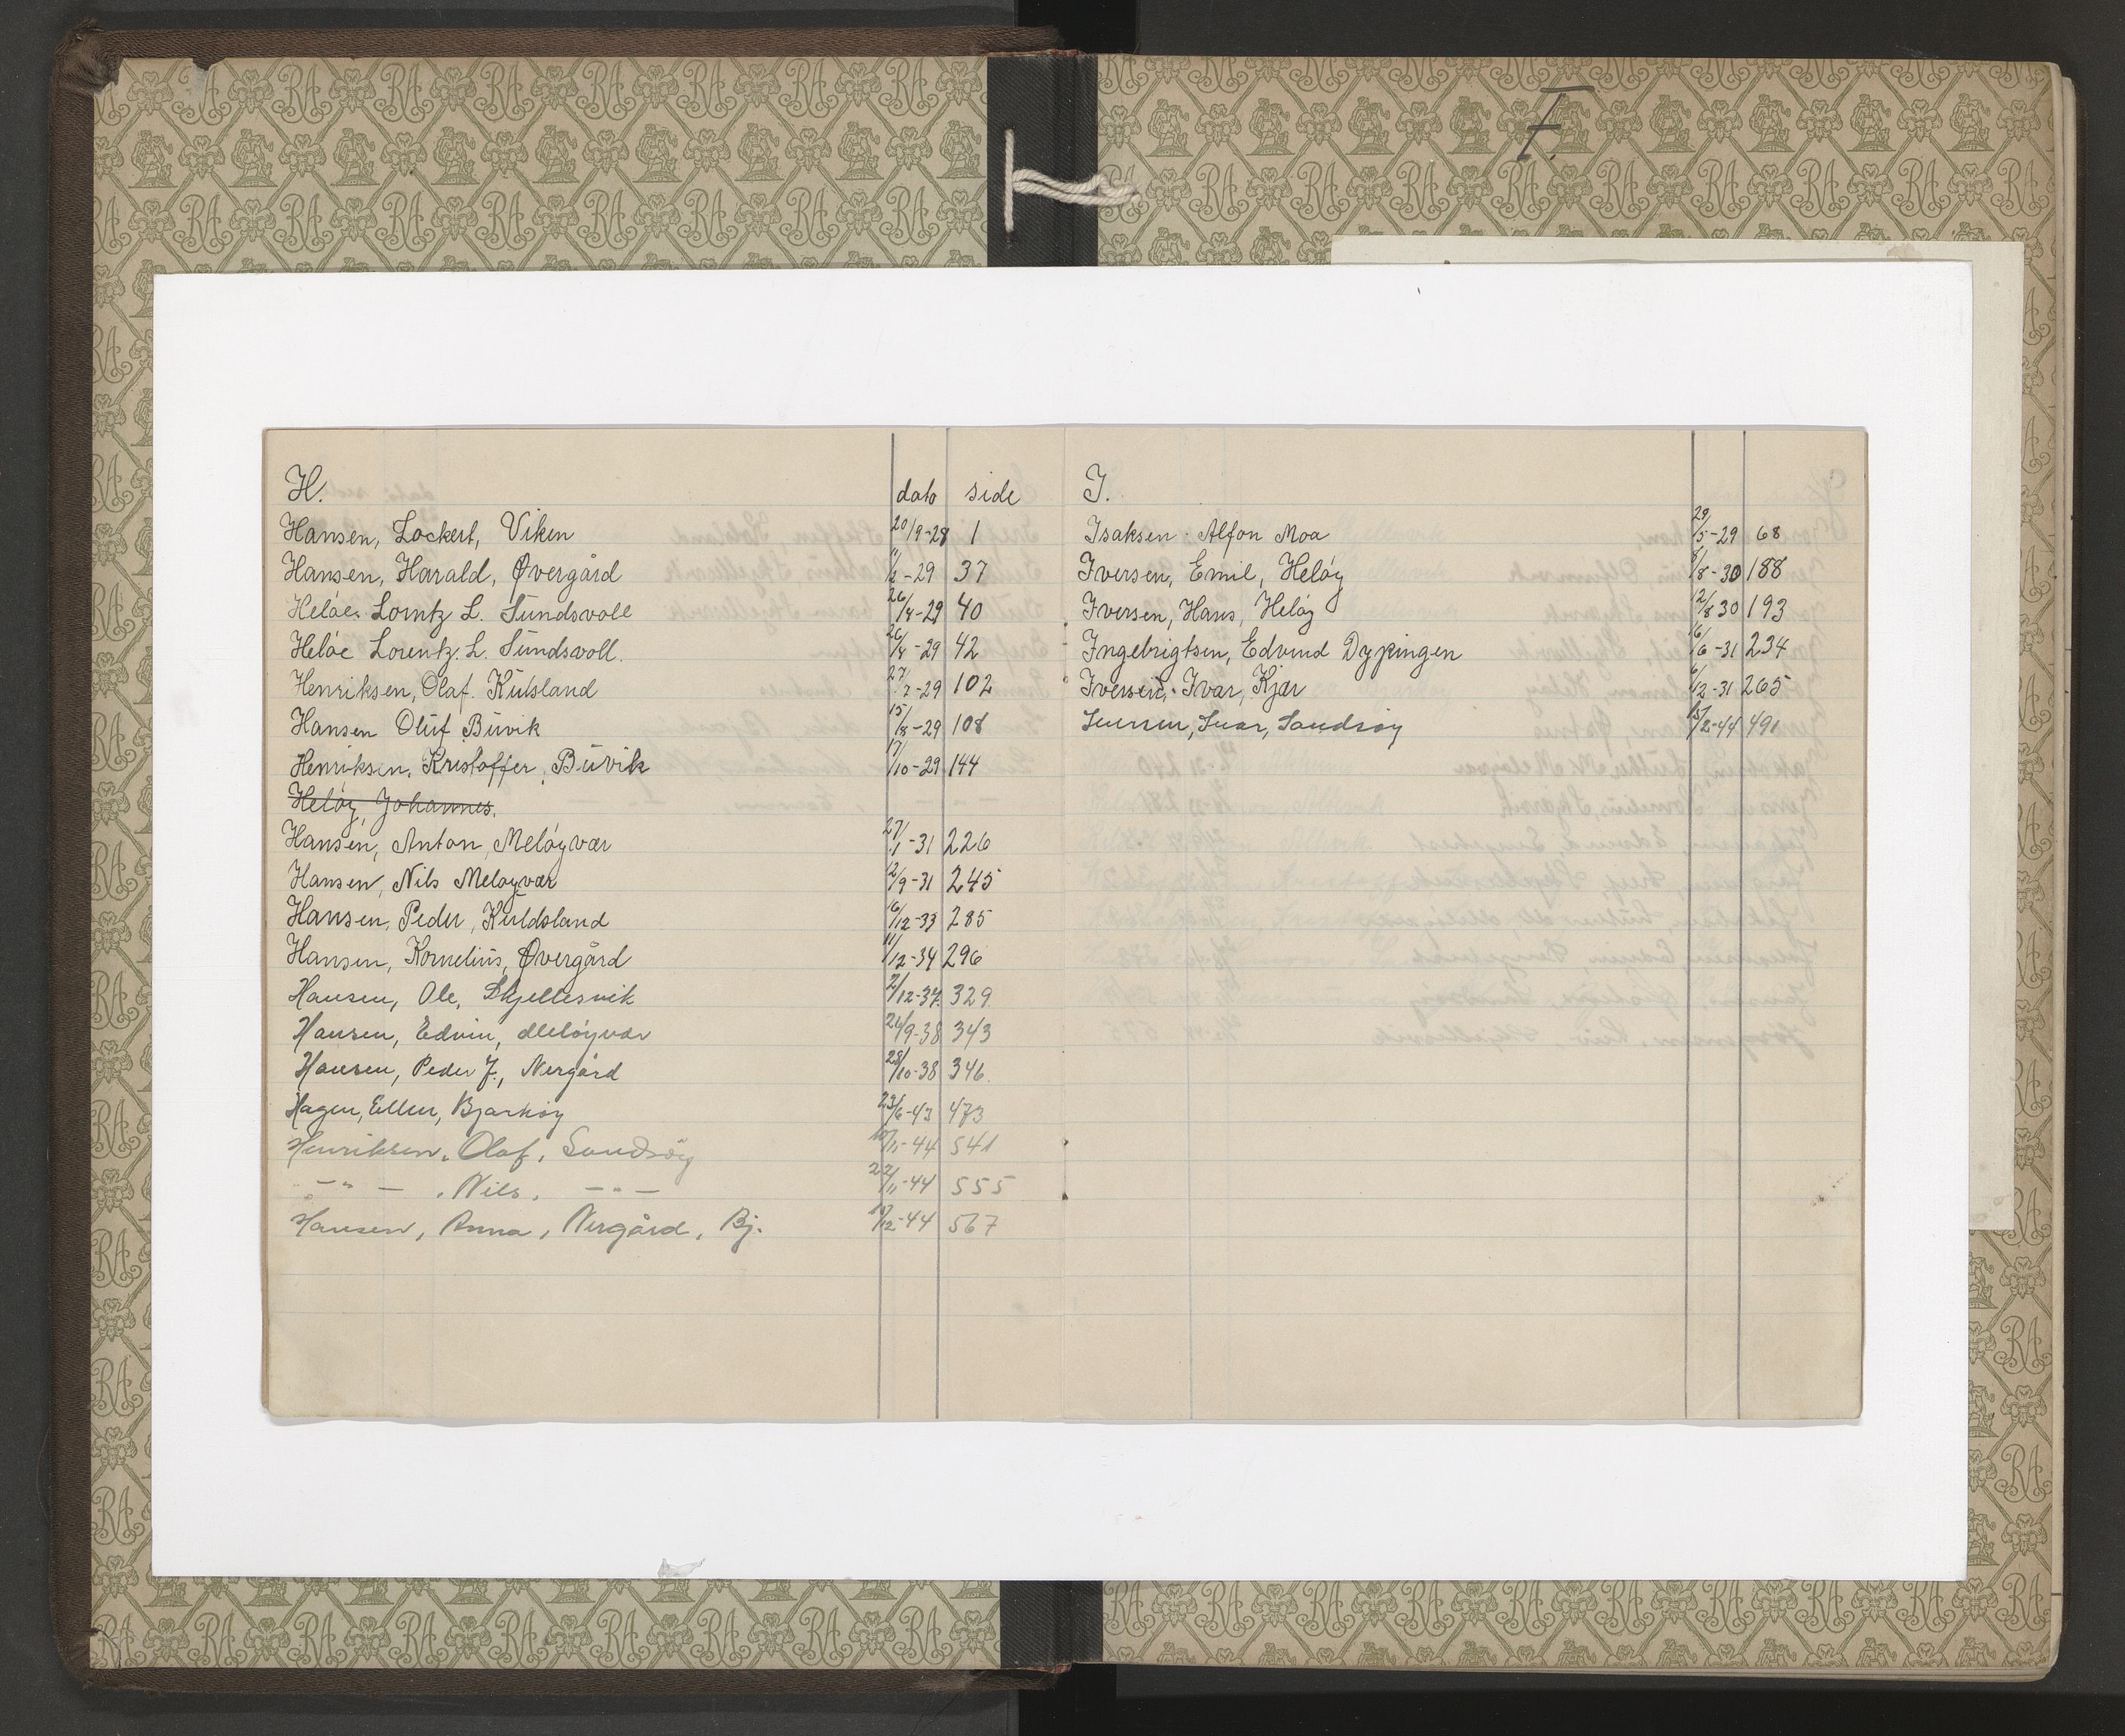 F.
H. dato side
Hansen, Lockert, Viken 20/9-28 1
Hansen, Harald, Øvergård 11/2-29 37
Heløe. Lorntz L. Sundsvoll 26/4-29 40
Heløe Lorentz. L. Sundsvoll. 26/4-29 42
Henriksen, Olaf. Kulsland 27/7-29 102
Hansen Oluf Buvik 15/8-29 108
Henriksen, Kristoffer, Buvik 17/10-29 144
Heløy, Johannes.
Hansen, Anton, Meløyvær 27/1-31 226
Hansen, Nils Meløyvær 12/9-31 245
Hansen, Peder, Kuldsland 16/12-33 285
Hansen, Kornelius, Øvergård 11/12-34 296
Hansen, Ole, Skjellesvik 2/12-37 329
Hansen, Edvin, Meløyvær 24/9-38 343
Hansen, Peder J., Nergård 28/10-38 346
Hagen, Ellen, Bjarkøy 23/6-43 473
Henriksen, Olaf, Sandsøy 10/11-44 541
— " — , Nils, — " — 22/11-44 555
Hansen, Anna, Nergård, Bj. 19/12-44 567
I.
Isaksen Alfon Moa 29/5-29 68
Iversen, Emil, Heløy 8/8-30 188
Iversen, Hans, Heløy 12/8 30 193
Ingebrigtsen, Edvind Dypingen 16/6-31 234
Iversen, Ivar, Kjær 6/12-31 265
Iversen, Ivar, Sandsøy 15/2-44 491